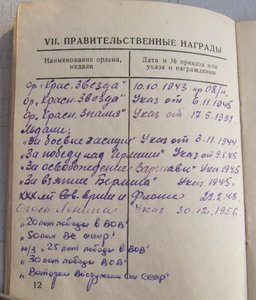 VII. ПРАВИТЕЛЬСТВЕННЫЕ НАГРАДЫ
Наименование ордена, медали
Дата и № приказа или указа о награждении
ор. „Крас. Звезда" 10.10.1943 пр 08/н.
Ор. „Красн. Звезда" Указ от 6.11.1945
Ор. „Красн. Знамя" Указ от 17.5.1951.
Медали:
„За боевые заслуги" Указ от 3.11.1944
„За победу над Германией" Указ 9.5.45
„За освобождение Варшавы" Указ 1945.
„За взятие Берлина" Указ 1945.
XXX лет Сов. армии и Флота 22.2.48.
Орден Ленина Указ 30.12.1956
„20 лет победы в ВОВ"
„50 лет ВС СССР"
н/з „25 лет победы в ВОВ"
„30 лет победы в ВОВ"
„Ветеран Вооружен Сил СССР"
12